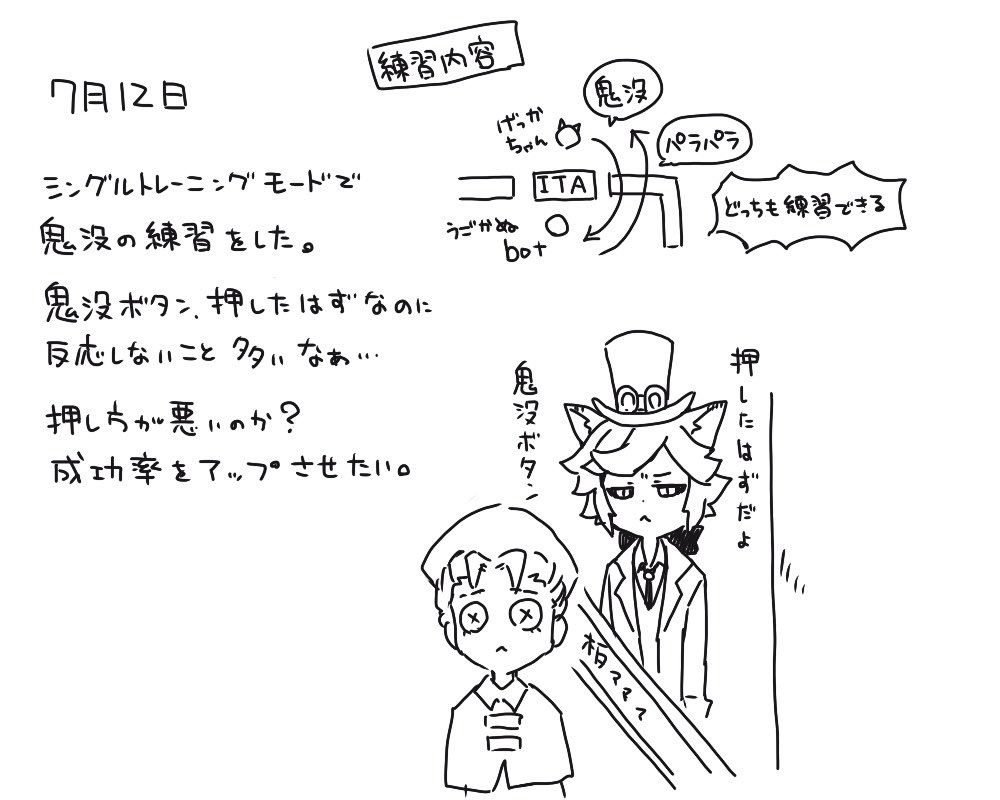 7月12日
シングルトレーニングモードで
鬼没の練習をした。
鬼没ボタン、押したはずなのに
反応しないこと多いなぁ…
押し方が悪いのか？
成功率をアップさせたい。
練習内容
鬼没
げっか
ちゃん
パラパラ
ITA
うごかぬ
bot
どっちも練習できる
押したはずだよ
鬼没ボタン